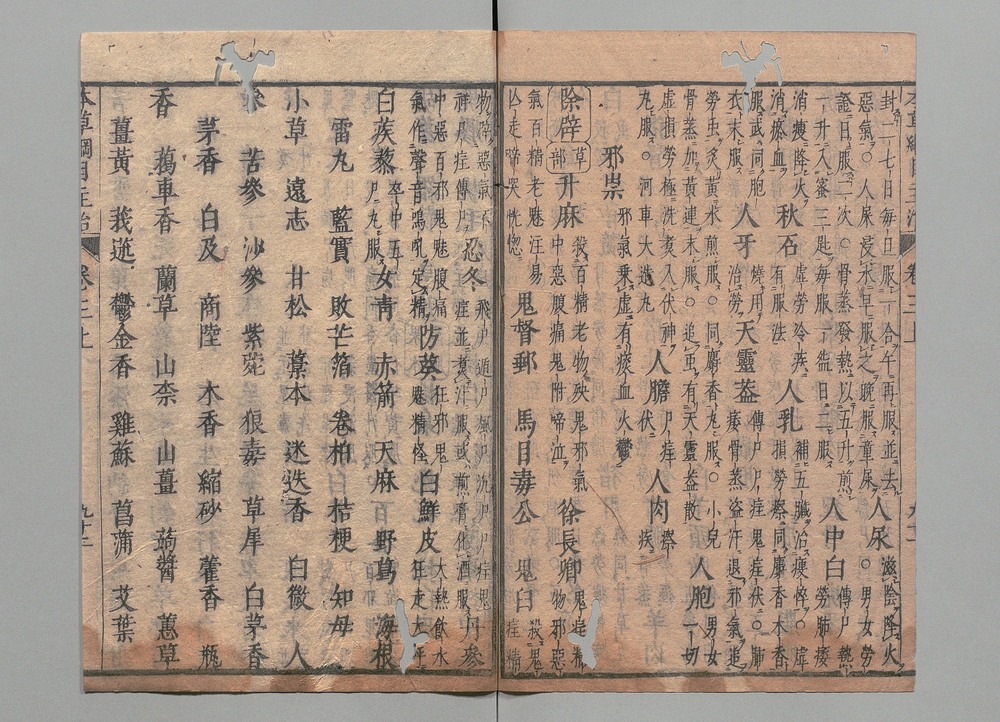 封一七日每旦服一合午再服並去
惡氣○人尿浸水早服之晚服童尿
人尿
滋陰降火
○男女勞
證日服二次○骨蒸發熱以五升煎
一升入蜜三匙每服一盞日二服
人中白
傳尸熱
勞肺痿
消瘦降火
消瘀血
秋石
虛勞冷疾
有服法
人乳
補五臟治瘦悴○虛
損勞瘵同麝香木香
服或同胞
衣末服
人牙
燒用
治勞
天靈蓋
傳尸尸疰鬼疰伏○肺
痿骨蒸盜汗退邪氣追
勞虫炙黃水煎服○同麝香丸服○小兒
骨蒸加黃連末服○追虫有天靈蓋散
人胞
男女
一切
虛損勞極洗煮入伏神
丸服○河車大造丸
人膽
尸疰
伏
人肉
瘵
疾
邪祟
邪氣乘虛有痰血火鬱
除辟
草部
升麻
殺百精老物殃鬼邪氣
中惡腹痛鬼附啼泣
徐長卿
鬼疰精
物邪惡
氣百精老魅注易
亡走啼哭恍惚
鬼督郵
馬目毒公
鬼臼
殺鬼
疰精
物辟惡氣不
神
忍冬
飛尸遁尸風尸沉尸尸疰鬼
疰並煮汁服或煎膏化酒服
丹參
中惡百邪鬼魅腹痛
氣作聲音鳴吼定精
防葵
狂邪鬼
魅精怪
白鮮皮
大熱飲水
狂走大年
白蒺藜
卒中五
尸丸服
女青
赤箭
天麻
野葛
海根
雷丸
藍實
敗芒箔
卷柏
桔梗
知母
小草
遠志
甘松
藁本
迷迭香
白微
人
參
苦參
沙參
紫菀
狼毒
草犀
白茅香
茅香
白及
商陸
木香
縮砂
藿香
瓶
香
藒車香
蘭草
山柰
山薑
蒟醬
蕙草
薑黃
莪蒁
鬱金香
雞蘇
菖蒲
艾葉
本草綱目主治
卷三上
九十二